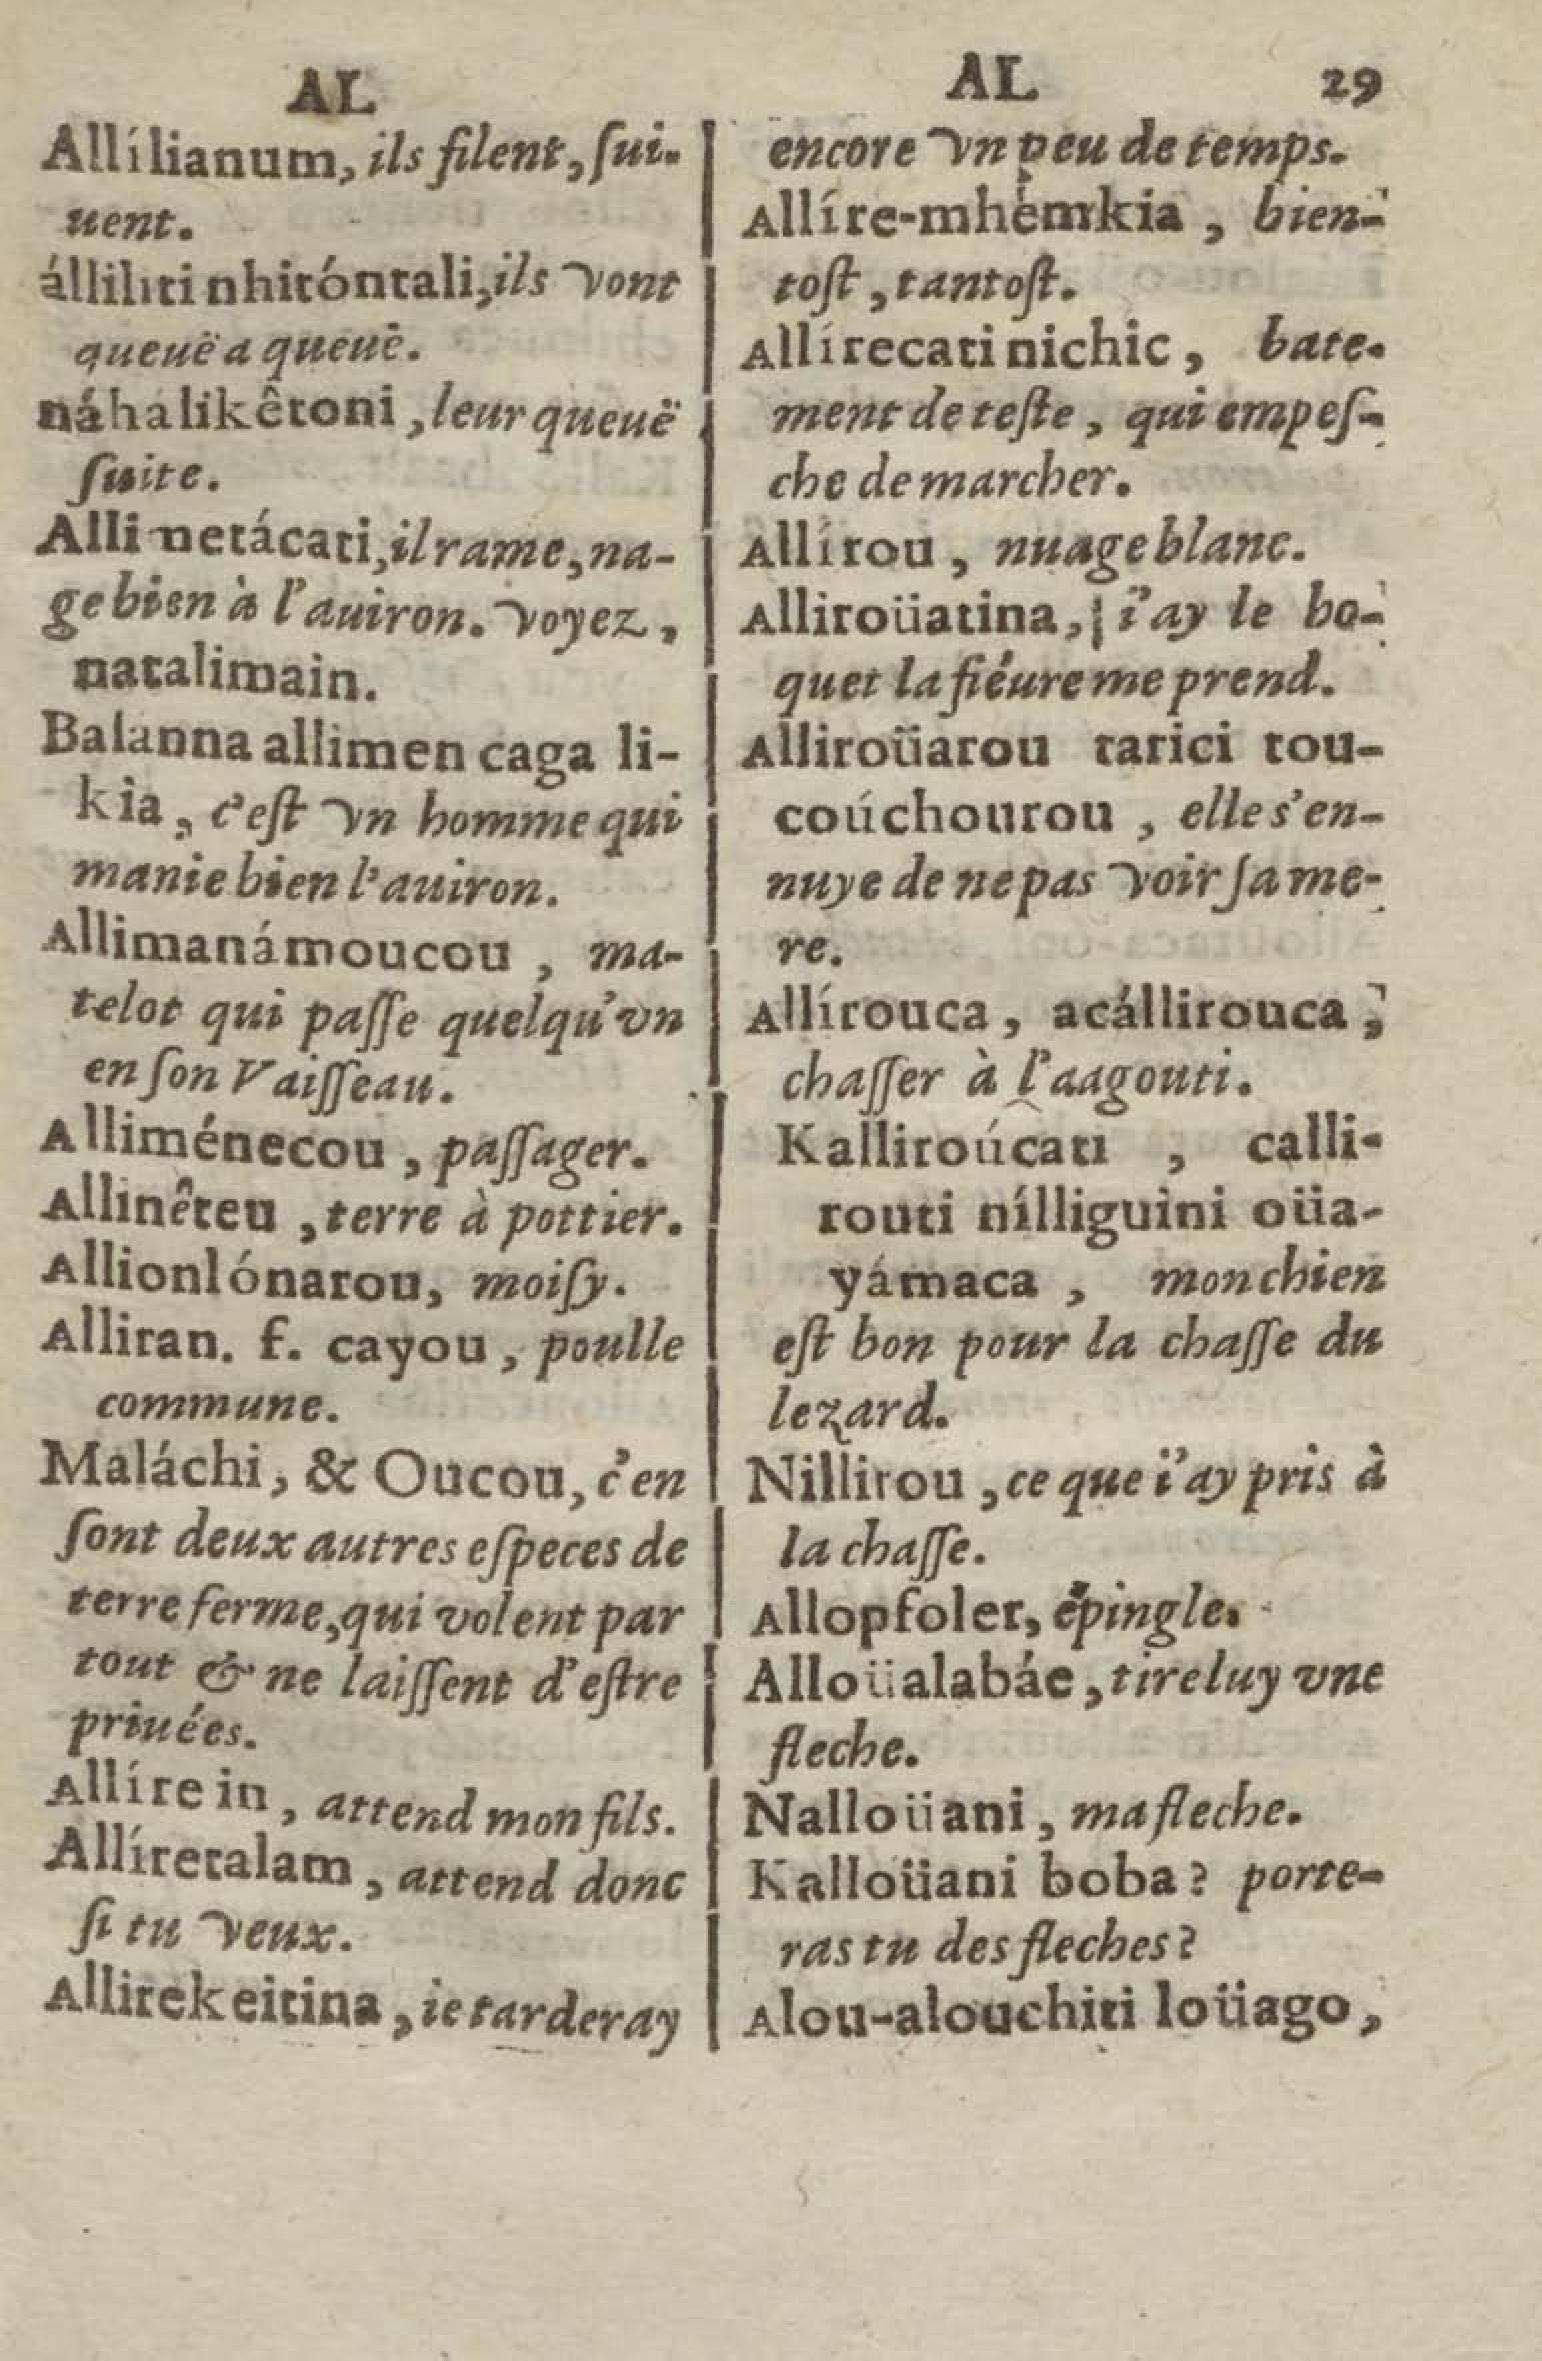 AL
Allílianum, ils filent, ſui-
uent.
álliliti nhitóntali, ils vont
queuë a queuë.
náhálikêtoni, leur queuë
ſuite.
Alli netácati, il rame, na-
ge bien à l'auiron. voyez,
natalimain.
Balanna allimen caga li-
kia, c'eſt vn homme qui
manie bien l'auiron.
Allimanámoucou, ma-
telot qui paſſe quelqu'vn
en ſon Vaiſſeau.
Alliménecou, paſſager.
Allinêteu, terre à pottier.
Allionlónarou, moiſy.
Alliran. f. cayou, poulle
commune.
Maláchi, & Oucou, c'en
ſont deux autres eſpeces de
terre ferme, qui volent par
tout & ne laiſſent d'eſtre
priuées.
Allíre in, attend mon fils.
Allíretalam, attend donc
ſi tu veux.
Allirekeitina, ie tarderay
AL 29
encore vn peu de temps.
Allíre-mhémkia, bien-
toſt, tantoſt.
Allírecatinichic, bate-
ment de teſte, qui empeſ-
che de marcher.
Allírou, nuage blanc.
Alliroüatina, i'ay le bo-
quet la fiéure me prend.
Alliroüarou tarici tou-
coúchourou, elle s'en-
nuye de ne pas voir ſa me-
re.
Allírouca, acállirouca,
chaſſer à l'aagouti.
Kalliroúcati, calli-
routi nílliguini oüa-
yámaca, mon chien
eſt bon pour la chaſſe du
lezard.
Nillirou, ce que i'ay pris à
la chaſſe.
Allopfoler, épingle.
Alloüalabáe, tire luy vne
fleche.
Nalloüani, ma fleche.
Kalloüani boba? porte-
ras tu des fleches?
Alou-alouchiti loüago,